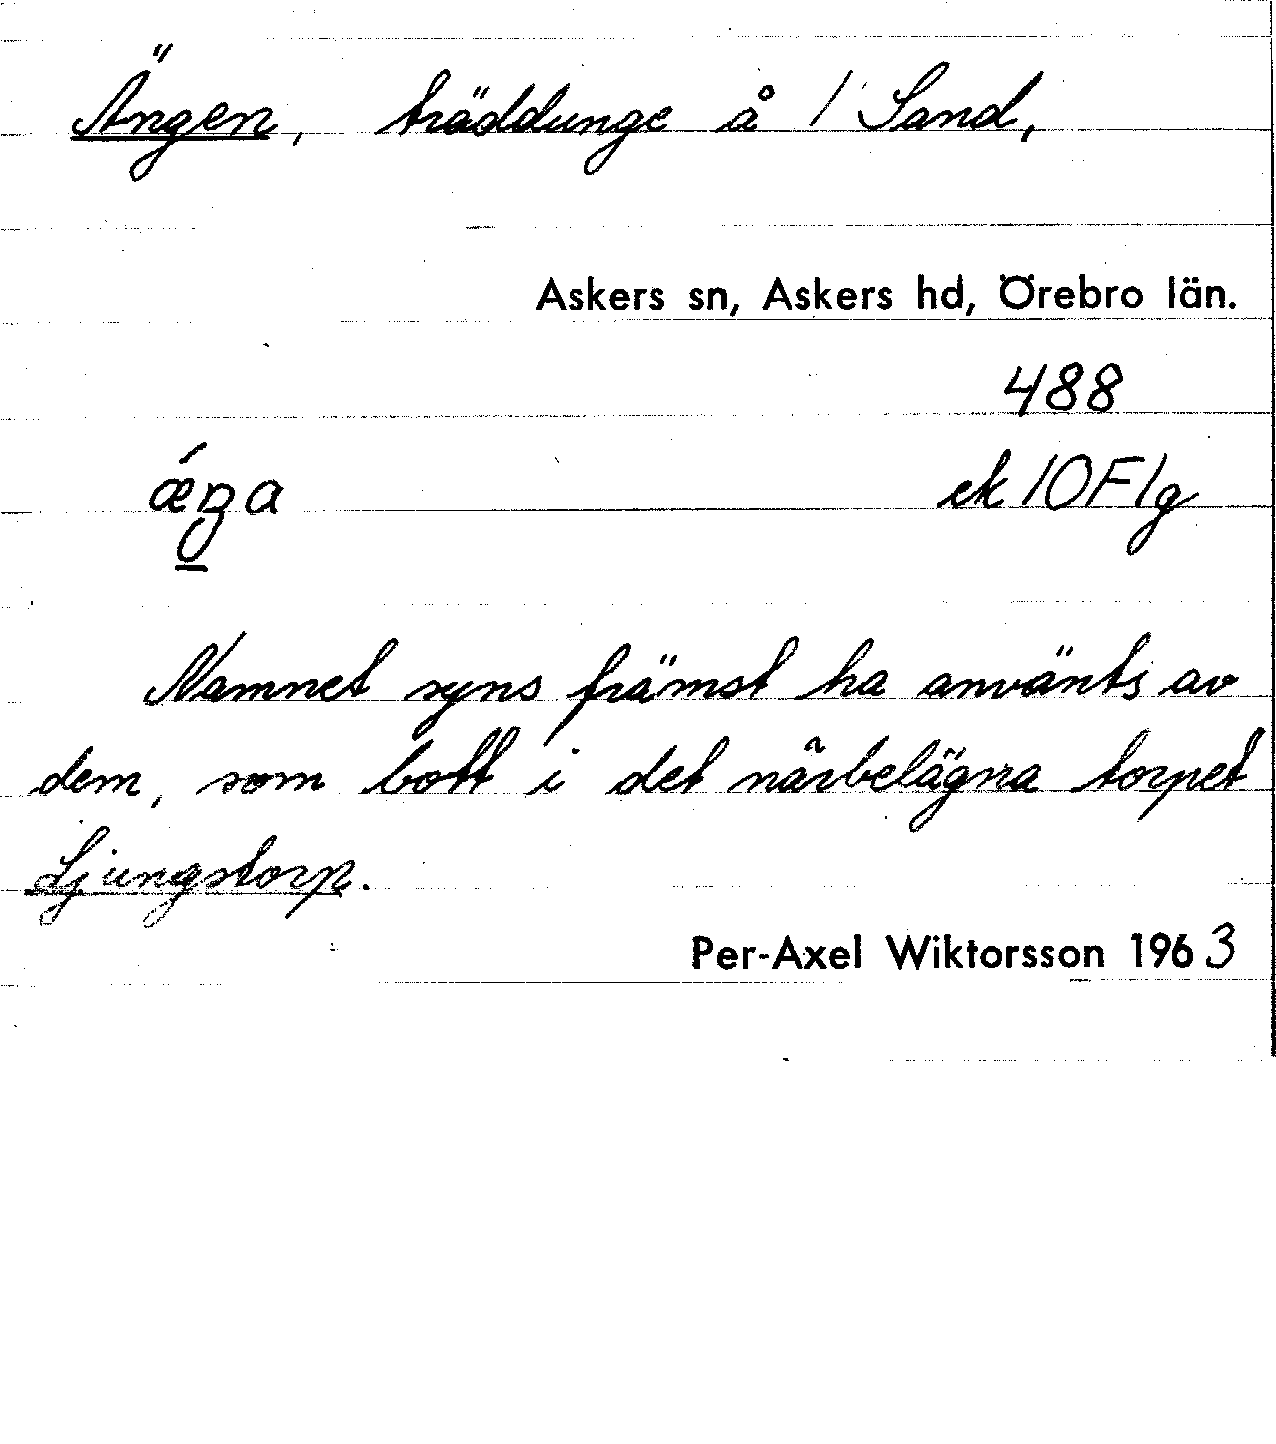 Ängen, träddunge å 1 Sand,
Askers sn, Askers hd, Örebro län.
488
ǽŋa ek 10F1g
Namnet syns främst ha använts av
dem, som bott i det närbelägna torpet
Ljungstorp.
Per-Axel Wiktorsson 1963